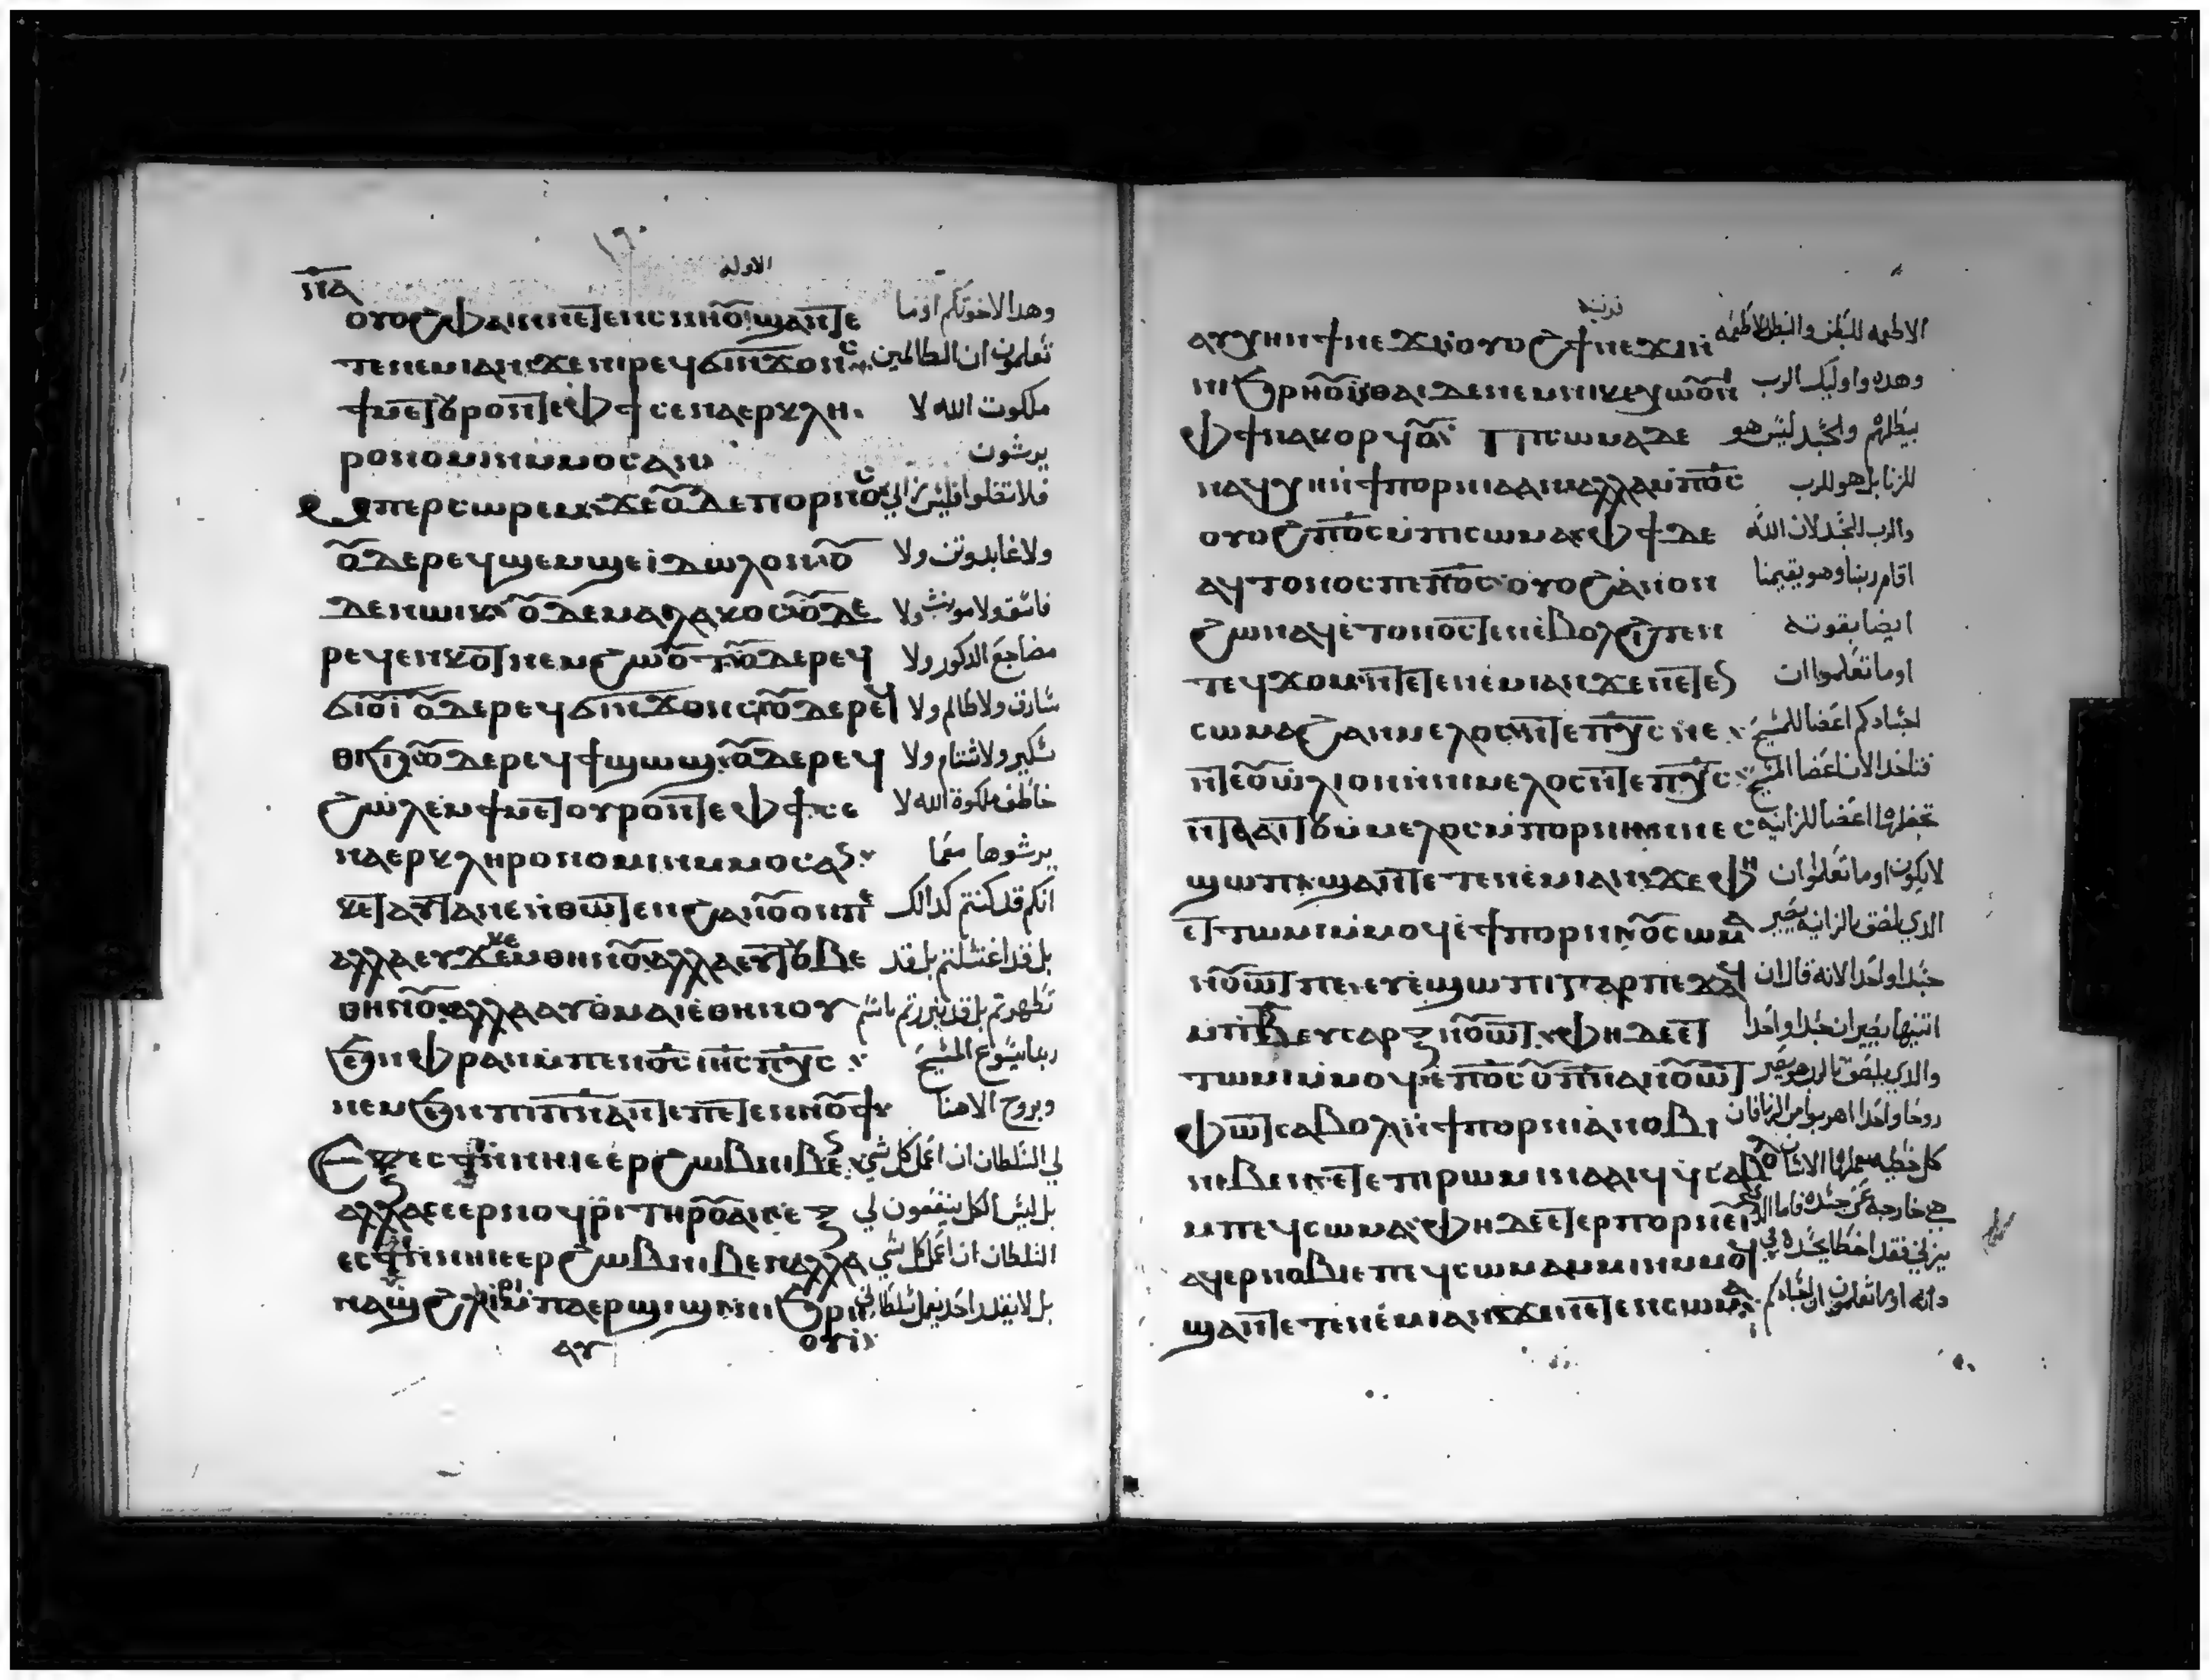 الاوله
ⲡⲁ
ⲟⲩⲟϩ ⲫⲁⲓ ⲛⲛⲉⲧⲉⲛⲥⲛⲏⲟⲩ ϣⲁⲛⲧⲉ وهدا لاخوتكم اوما
ⲧⲉⲛⲉⲙⲓ ⲁⲛ ϫⲉ ⲛⲓⲣⲉϥϭⲓⲛϫⲟⲛⲥ تعلمون ان الظالمين
ϯⲙⲉⲧⲟⲩⲣⲟ ⲛⲧⲉ ⲫϯ ⲥⲉⲛⲁⲉⲣⲕⲗⲏ ملكوت الله لا
ⲣⲟⲛⲟⲙⲓⲛ ⲙⲙⲟⲥ ⲁⲛ يرثون
ⲙⲡⲉⲣⲥⲱⲣⲉⲙ ϫⲉ ⲟⲩⲇⲉ ⲡⲟⲣⲛⲟⲥ فلا تضلوا فليس زاني
ⲟⲩⲇⲉ ⲣⲉϥϣⲉⲙϣⲉ ⲓⲇⲱⲗⲟⲛ ⲟⲩ ولا عابد وتن ولا
ⲇⲉ ⲛⲱⲓⲕ ⲟⲩⲇⲉ ⲙⲁⲗⲁⲕⲟⲥ ⲟⲩⲇⲉ فاسق ولا مونث ولا
ⲣⲉϥⲉⲛⲕⲟⲧ ⲛⲉⲙ ϩⲱⲟⲩⲧ ⲟⲩⲇⲉ ⲣⲉϥ مضاجع الدكور ولا
ϭⲓⲟⲩⲓ ⲟⲩⲇⲉ ⲣⲉϥϭⲓⲛϫⲟⲛⲥ ⲟⲩⲇⲉ ⲣⲉϥ سارق ولا ظالم ولا
ⲑⲓϧⲓ ⲟⲩⲇⲉ ⲣⲉϥϯϣⲱϣ ⲟⲩⲇⲉ ⲣⲉϥ سكير ولا شتام ولا
ϩⲱⲗⲉⲙ ϯⲙⲉⲧⲟⲩⲣⲟ ⲛⲧⲉ ⲫϯ ⲥⲉ خاطف ملكوة الله لا
ⲛⲁⲉⲣⲕⲗⲏⲣⲟⲛⲟⲙⲓⲛ ⲙⲙⲟⲥ ⲁⲛ يرثوها
ⲕⲉⲧⲁⲩⲧⲁ ⲛⲉ ⲛⲑⲱⲧⲉⲛ ϩⲁⲛⲟⲩⲟⲛ ⲡⲉ انكم قد كنتم كدالك
ⲁⲗⲗⲁ ⲉⲩϫⲉⲕⲉⲙ ⲑⲏⲛⲟⲩ ⲁⲗⲗⲁ ⲉⲩⲧⲟⲩⲃⲉ بل قد اغتسلتم بل قد
ⲑⲏⲛⲟⲩ ⲁⲗⲗⲁ ⲁⲩⲑⲙⲁⲓⲉ ⲑⲏⲛⲟⲩ تطهرتم بل قد تبررتم باسم
ϧⲉⲛ ⲫⲣⲁⲛ ⲙⲡⲉⲛⲟⲥ ⲓⲏⲥ ⲡⲭⲥ ربنا يسوع المسيح
ⲛⲉⲙ ϧⲉⲛ ⲡⲓⲡⲛⲁ ⲛⲧⲉ ⲡⲉⲧⲉⲛⲛⲟⲩϯ وبروح الاهنا
ⲉⲝⲉⲥⲧⲓⲛ ⲛⲏⲓ ⲉⲉⲣ ϩⲱⲃ ⲛⲓⲃⲉⲛ لي السلطان ان اعمل كل شي
ⲁⲗⲗⲁ ⲥⲉⲉⲣⲛⲟϥⲣⲓ ⲧⲏⲣⲟⲩ ⲁⲛ ⲉⲝ بل ليس الكل ينفعون لي
ⲉⲥⲧⲓⲛ ⲛⲏⲓ ⲉⲉⲣ ϩⲱⲃ ⲛⲓⲃⲉⲛ ⲁⲗⲗⲁ السلطان ان اعمل كل شي
ⲛⲁϣ ϩⲗⲓ ⲛⲁⲉⲣϣⲓϣⲓ بل لا يقدر احد
ⲁⲩ
الاطعمه للبطن والبطن للاطعمه
ⲁⲩⲭⲏ ⲛϯⲛⲉϫⲓ ⲟⲩⲟϩ ϯⲛⲉϫⲓ
ⲛⲓϧⲣⲏⲟⲩⲓ ⲑⲁⲓ ⲇⲉ ⲛⲉⲙ ⲛⲓⲕⲉⲭⲱⲟⲩⲛⲓ وهده واوليك الرب
ⲫϯ ⲛⲁⲕⲟⲣϥⲟⲩ ⲡⲓⲥⲱⲙⲁ ⲇⲉ يبطلهم والجسد ليس هو
ⲛⲁϥⲭⲏ ⲛϯⲡⲟⲣⲛⲓⲁ ⲁⲛ ⲁⲗⲗⲁ ⲙⲡⲟⲥ للزنا بل هو للرب
ⲟⲩⲟϩ ⲡⲟⲥ ⲙⲡⲓⲥⲱⲙⲁ ⲫϯ ⲇⲉ والرب للجسد لان الله
ⲁϥⲧⲟⲩⲛⲟⲥ ⲡⲉⲛⲟⲥ ⲟⲩⲟϩ ⲁⲛⲟⲛ اقام ربنا وهو يقيمنا
ϩⲱⲛ ⲁϥⲉⲧⲟⲩⲛⲟⲥⲧⲉⲛ ⲉⲃⲟⲗ ϩⲓⲧⲉⲛ ايضا بقوته
ⲧⲉϥϫⲟⲙ ⲛⲧⲉⲧⲉⲛⲉⲙⲓ ⲁⲛ ϫⲉ ⲛⲉⲧⲉⲛ اوما تعلموا ان
ⲥⲱⲙⲁ ϩⲁⲛⲙⲉⲗⲟⲥ ⲛⲧⲉ ⲡⲭⲥ ⲛⲉ اجسادكم اعضا للمسيح
ⲛⲧⲉⲟⲩⲱⲗⲓ ⲟⲩⲛ ⲛⲛⲓⲙⲉⲗⲟⲥ ⲛⲧⲉ ⲡⲭⲥ فناخد الان اعضا المسيح
ⲛⲧⲁⲁⲓⲧⲟⲩ ⲙⲙⲉⲗⲟⲥ ⲙⲡⲟⲣⲛⲏ ⲛⲛⲉⲥ نجعلها اعضا للزانيه
ϣⲱⲡⲓ ϣⲁⲛⲧⲉⲧⲉⲛⲉⲙⲓ ⲁⲛ ϫⲉ ⲫⲏ لا يكون اوما تعلموا ان
ⲉⲧⲧⲱⲙⲓ ⲙⲙⲟϥ ⲉϯⲡⲟⲣⲛⲏ ⲟⲩⲥⲱⲙⲁ الدي يلصق بالزانيه يصير
ⲛⲟⲩⲱⲧ ⲡⲉ ⲉⲩⲉϣⲱⲡⲓ ⲅⲁⲣ ⲡⲉϫⲁϥ جسدا واحدا لانه قال ان
ⲙⲡⲃ ⲉⲩⲥⲁⲣⲝ ⲛⲟⲩⲱⲧ ⲫⲏ ⲇⲉ ⲉⲧ اتنيهما يصيران جسدا واحدا
ⲧⲱⲙⲓ ⲙⲙⲟϥ ⲉⲡⲟⲥ ⲟⲩⲡⲛⲁ ⲛⲟⲩⲱⲧ والدي يلصق بالرب يصير
ⲫⲱⲧ ⲥⲁⲃⲟⲗ ⲛϯⲡⲟⲣⲛⲓⲁ ⲛⲟⲃⲓ روحا واحدا اهربوا من الزنا فان
ⲛⲓⲃⲉⲛ ⲉⲧⲉ ⲡⲓⲣⲱⲙⲓ ⲛⲁⲁⲓϥ ⲥⲁⲃⲟⲗ كل خطيه يعملها الانسان
ⲙⲡⲉϥⲥⲱⲙⲁ ⲫⲏ ⲇⲉ ⲉⲧⲉⲣⲡⲟⲣⲛⲉⲩⲓⲛ هي خارجه عن جسده فاما الدي
ⲁϥⲉⲣⲛⲟⲃⲓ ⲉⲡⲉϥⲥⲱⲙⲁ ⲙⲙⲓⲛ ⲙⲙⲟϥ يزني فقد اخطا بجسده
ϣⲁⲛⲧⲉⲧⲉⲛⲉⲙⲓ ⲁⲛ ϫⲉ ⲛⲉⲧⲉⲛⲥⲱⲙⲁ اوما تعلمون ان اجسادكم